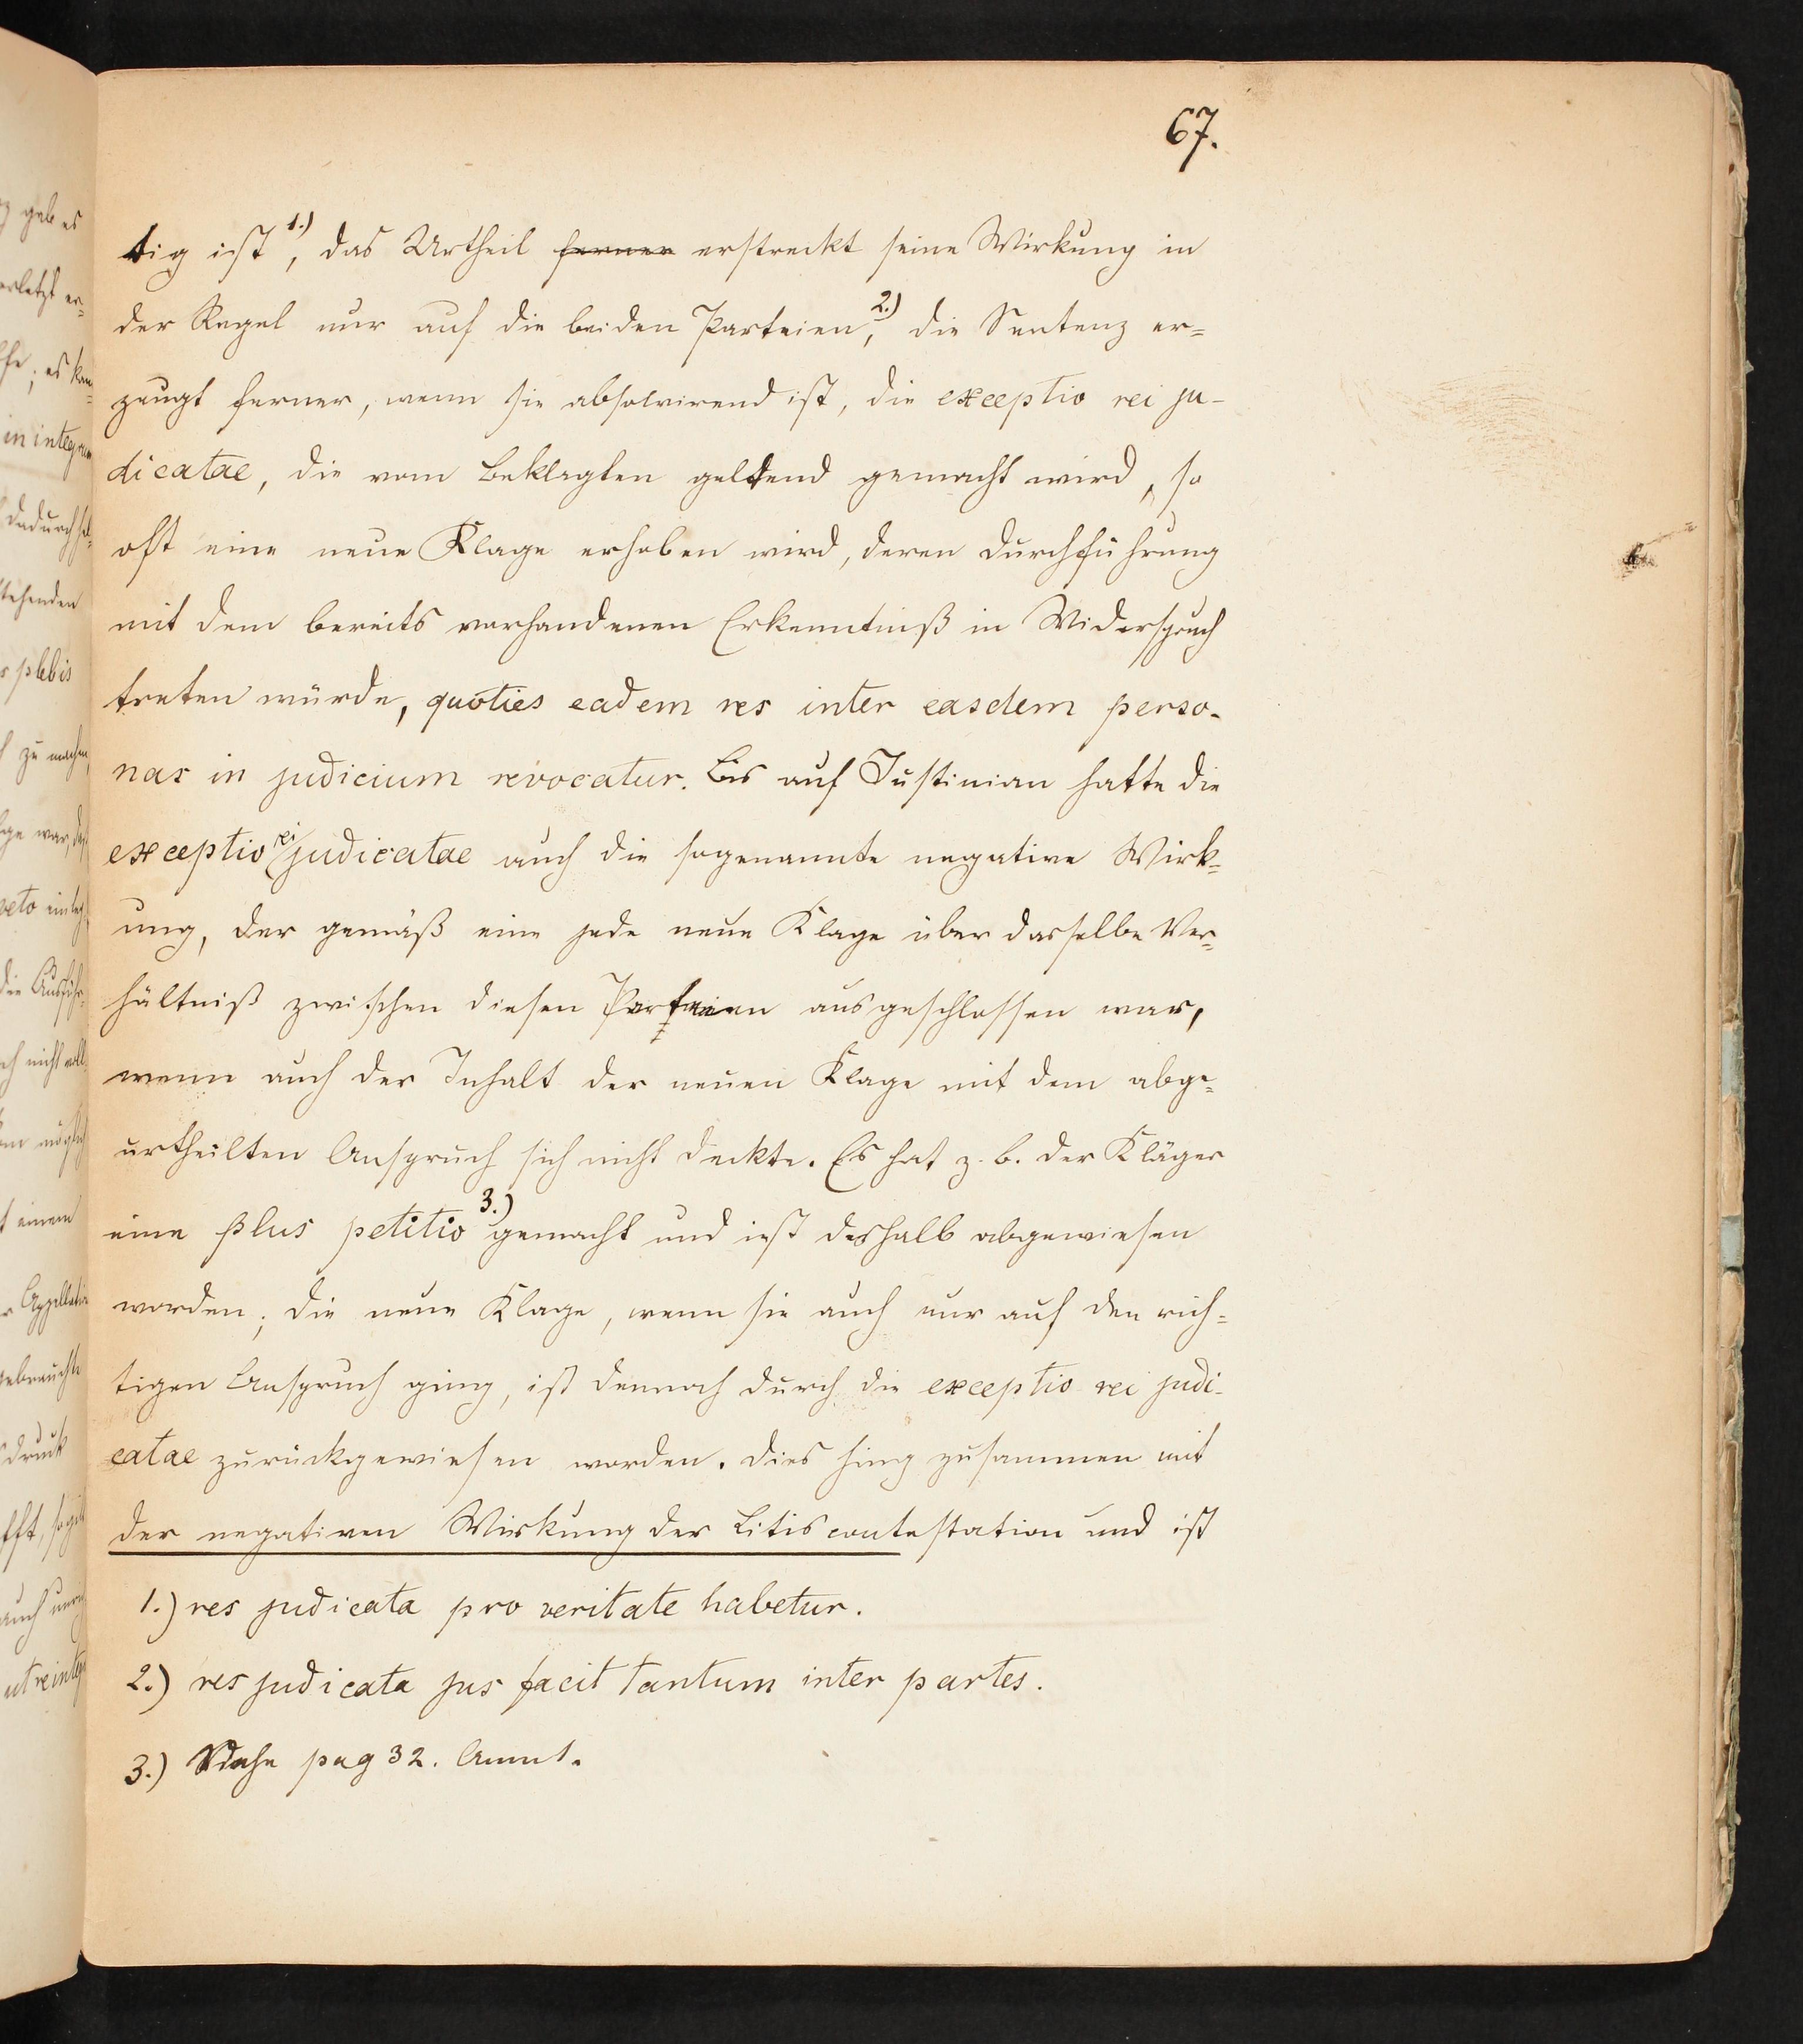 67.
tig ist 1.), das Urtheil ferner erstreckt seine Wirkung in
der Regel nur auf die beiden Parteien, 2.) die Sentenz er=
zeugt ferner, wenn sie absolvirend ist, die exceptio rei ju-
dicatae, die vom Beklagten geltend gemacht wird, so
oft eine neue Klage erhoben wird, deren Durchführung
mit dem bereits vorhandenen Erkenntniß in Widerspruch
treten würde, quoties eadem res inter easdem perso-
nas in judicium revocatur. Bis auf Justinian hatte die
exceptio rei judicatae auch die sogenannte negative Wirk=
ung, der gemäß eine jede neue Klage über dasselbe Ver=
hältniß zwischen diesen Parteien ausgeschlossen war,
wenn auch der Inhalt der neuen Klage mit dem abge=
urtheilten Anspruch sich nicht deckte. Es hat z. B. der Kläger
eine plus petitio 3.) gemacht und ist deshalb abgewiesen
worden; die neue Klage, wenn sie auch nur auf den rich=
tigen Anspruch ging, ist dennoch durch die exceptio rei judi-
catae zurückgewiesen worden. Dies hing zusammen mit
der negativen Wirkung der Litiscontestation und ist
1.) res judicata pro veritate habetur.
2.) res judicata jus facit tantum inter partes.
3.) Siehe pag 32. Anm 1.